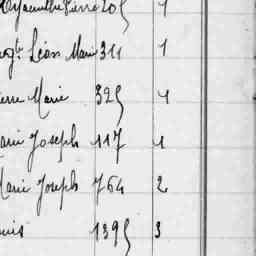 Hyacinthe Pierre 205 1
Léon Marie 311 1
Pierre Marie 325 1
Marie Joseph 117 1
Marie Joseph 764 2
1395 3